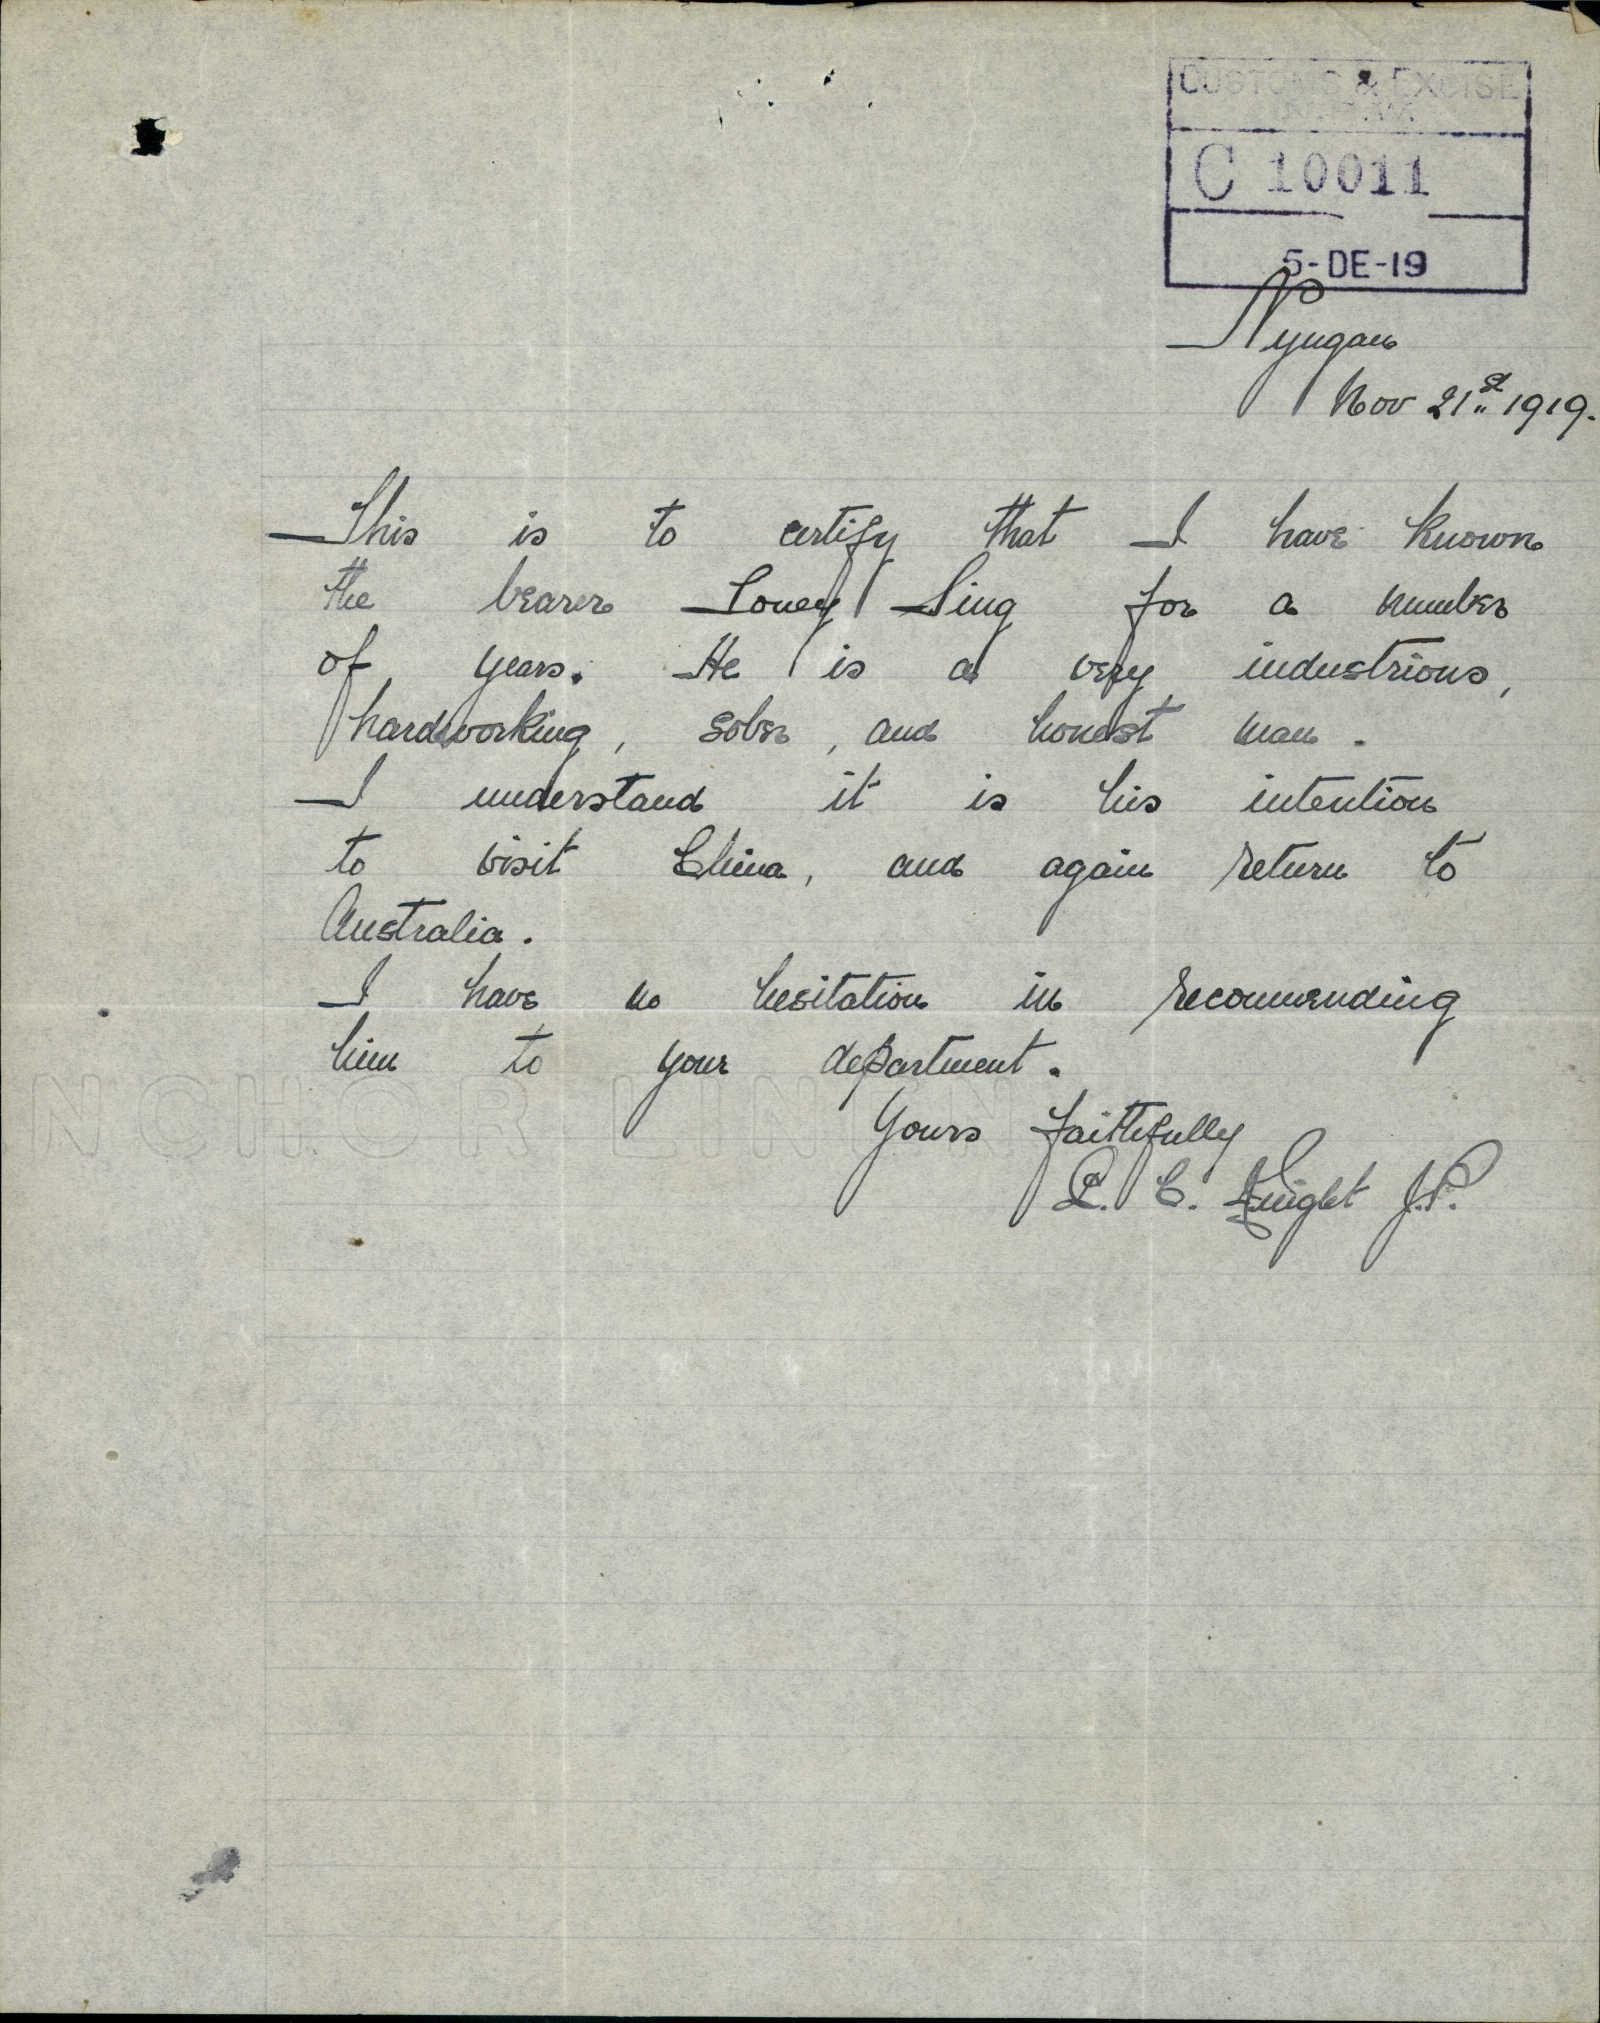 CUSTOMS & EXCISE
C 10011
5-DE-19
Nyngan
Nov 21st 1919.
This is to certify that I have known
the bearer Loney Sing for a number
of years. He is a very industrious,
hardworking, sober, and honest man.
I understand it is his intention
to visit China, and again return to
Australia.
I have no hesitation in recommending
him to your department.
NCHOR LINEN
Yours faithfully
L. C. Knight J.P.